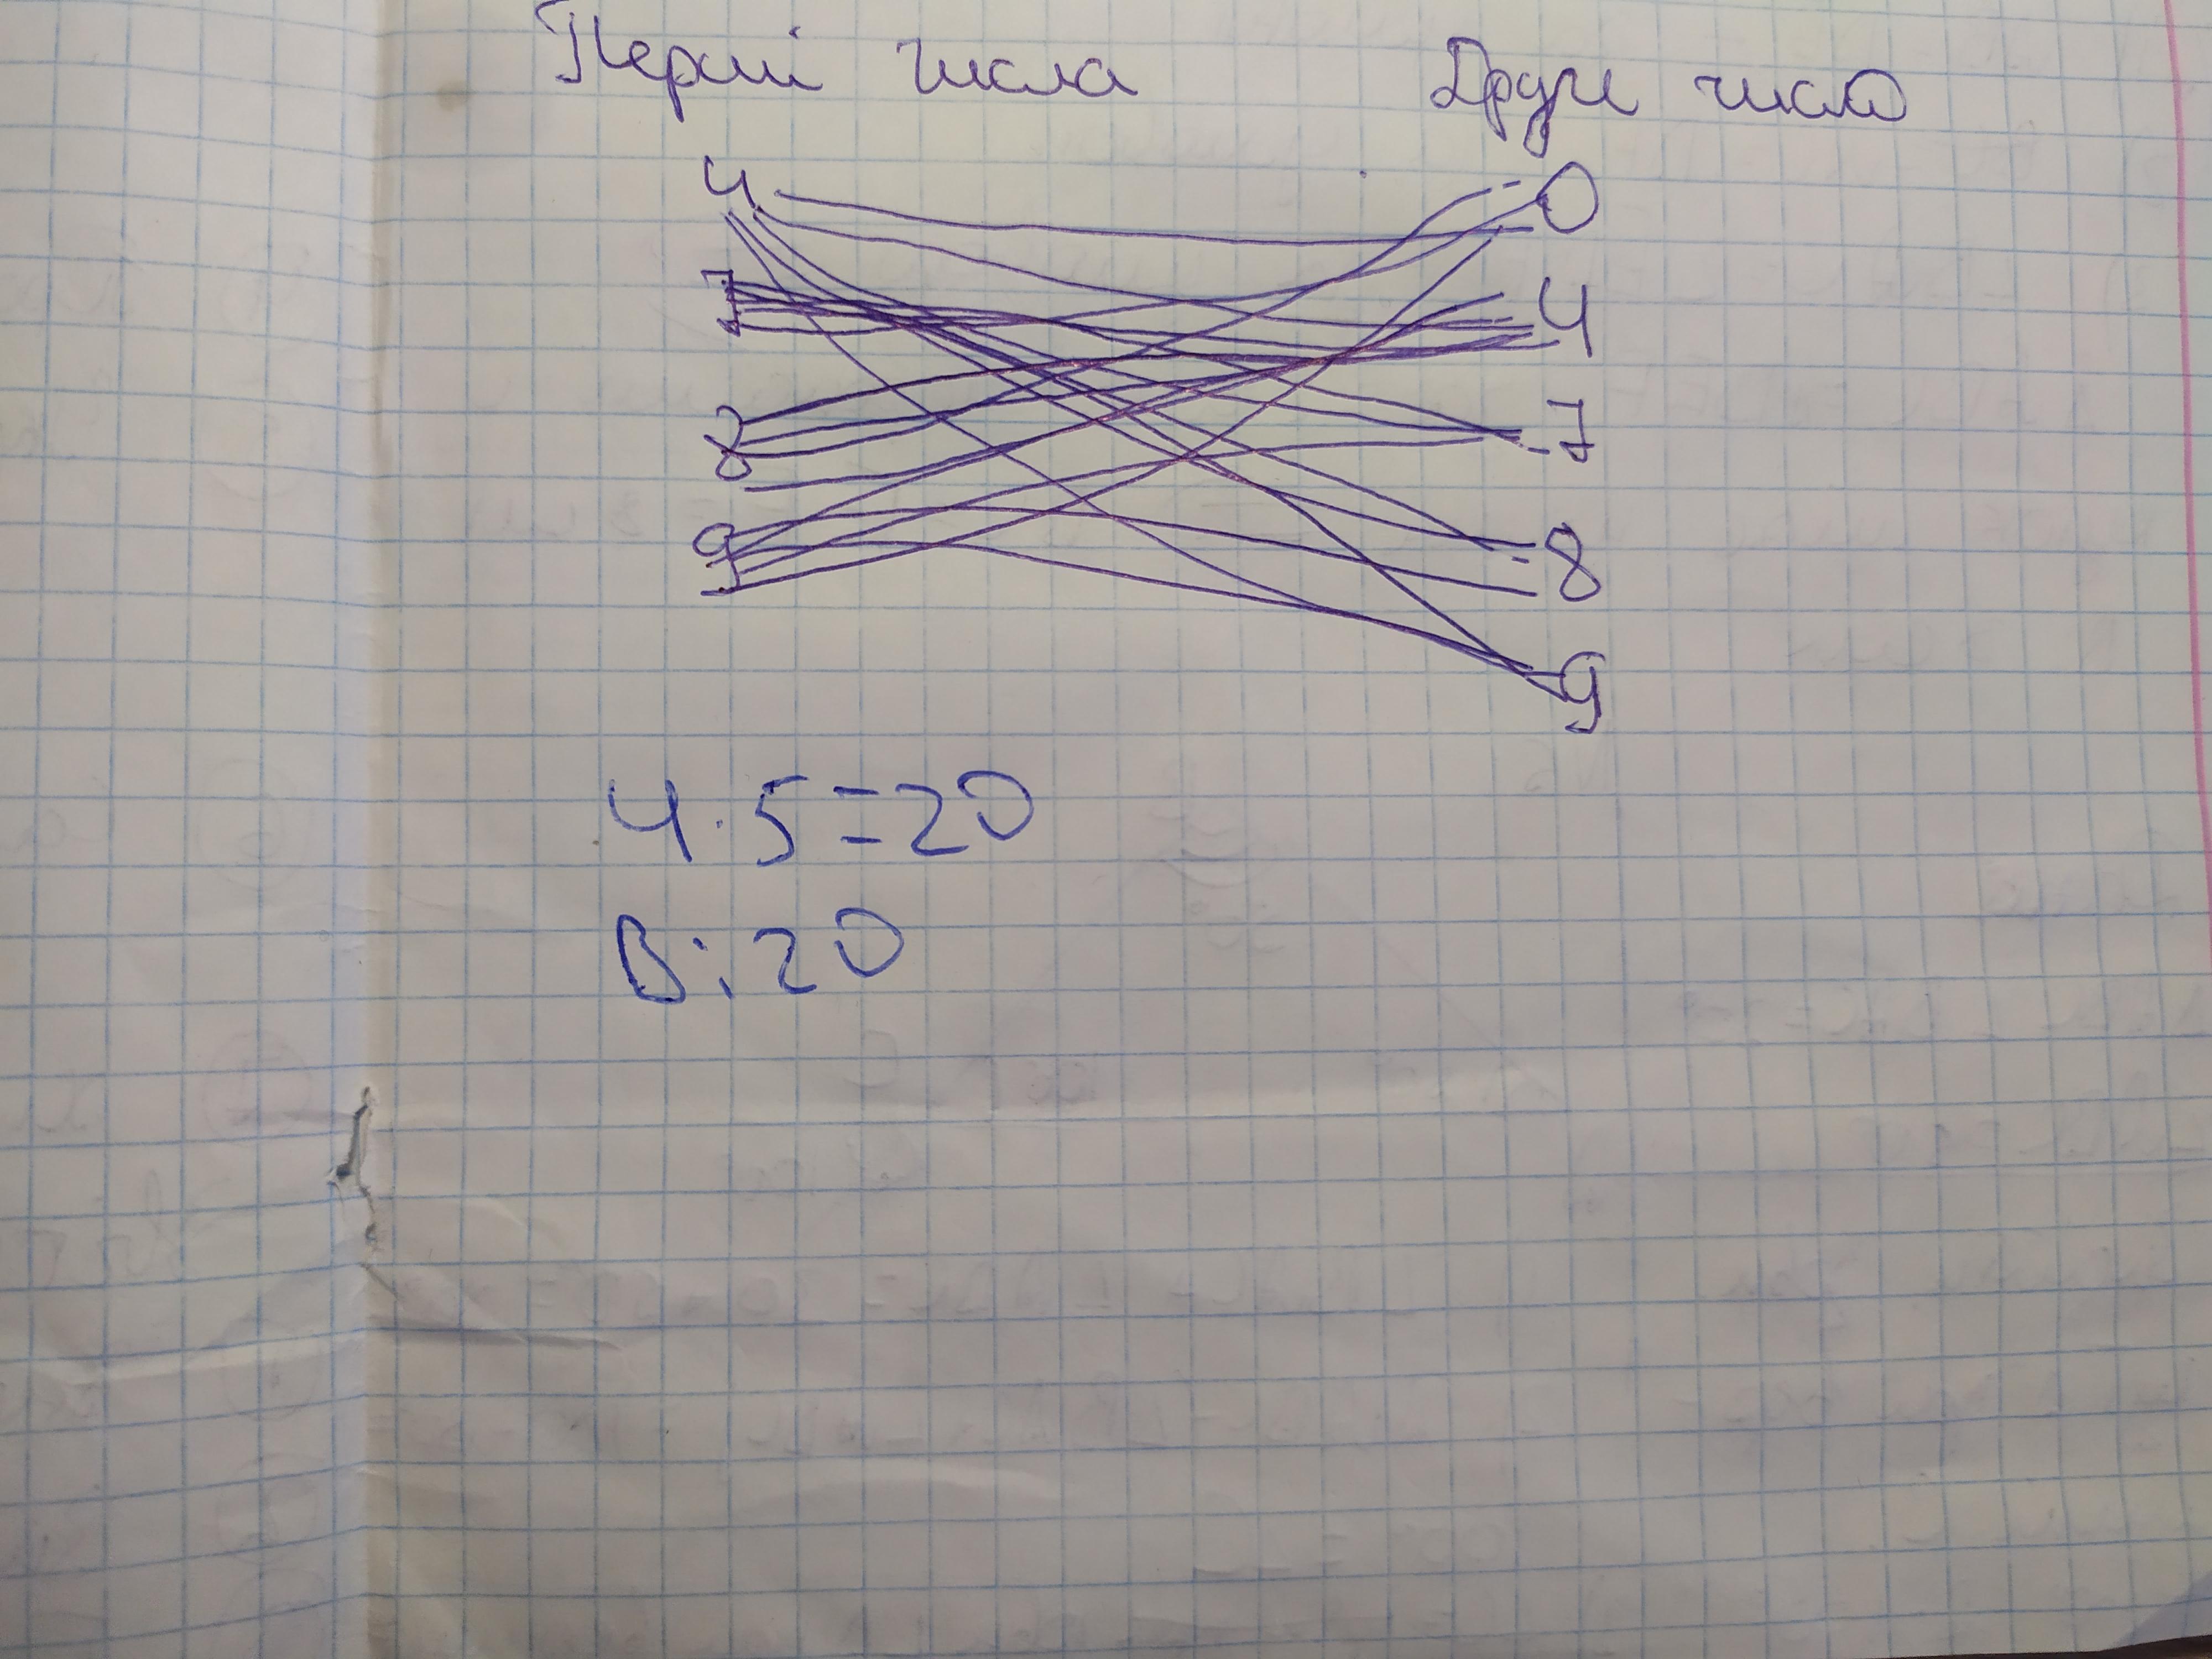 Перші числа Друге число
4 0
7 4
8 7
9 8
9
4·5=20
В:20